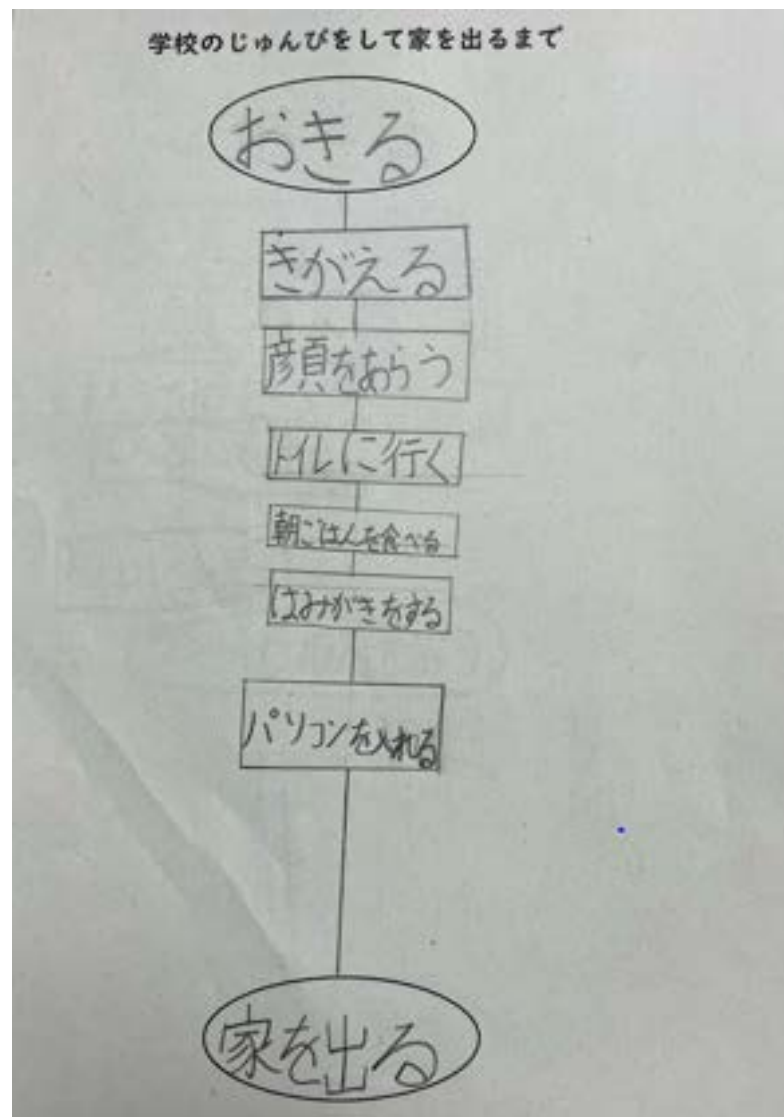 学校のじゅんびをして家を出るまで
おきる
きがえる
顔をあらう
トイレに行く
朝ごはんを食べる
はみがきをする
パソコンを入れる
家を出る